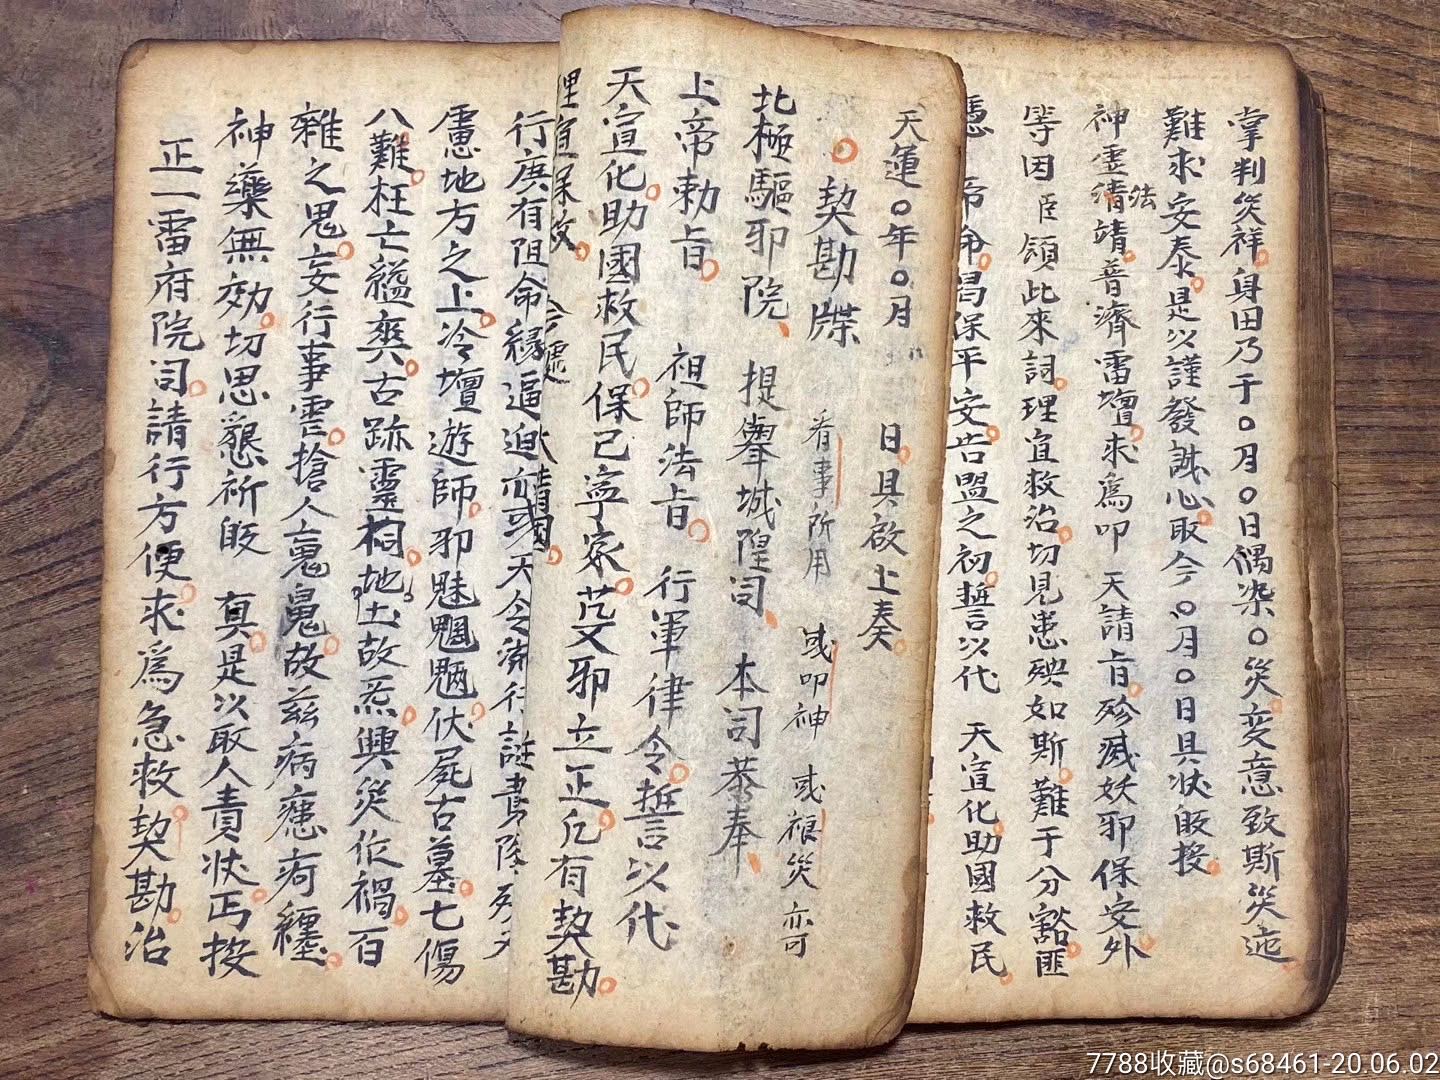 掌判災祥身田乃于〇月〇日偶染〇災変意致斯災迍
難求安泰是以謹發誠心取今〇月〇日具状畈投
神霊清法靖普濟雷壇求為叩 天請旨殄滅妖邪保安外
等因臣領此來詞理宜救治切見患殃如斯難于分豁匪
憑 帝命曷保平安告盟之初誓言以代 天宣化助國救民
天運〇年〇月 日具啟上奏
契勘牒 看事所用 或叩神 或禳災亦可
北極驅邪院 提舉城隍司 本司恭奉
上帝勅旨 祖師法旨 行軍律令誓言以代
天宣化助國救民保己寧家芟邪立正凡有契勘
理宜保
行庚有阻命縁逼迫亦或 天令流行
慮地方之上冷壇遊師邪魅魍魎伏屍古墓七傷
八難枉亡古跡靈祠地土故炁興災作禍百
雜之鬼妄行事霊搶人鬼故兹病瘧疴纏
神藥無効切思懇祈畈 真是以取人責状丐投
正一雷府院司請行方便求為急救契勘治
7788收藏@s68461-20.06.02